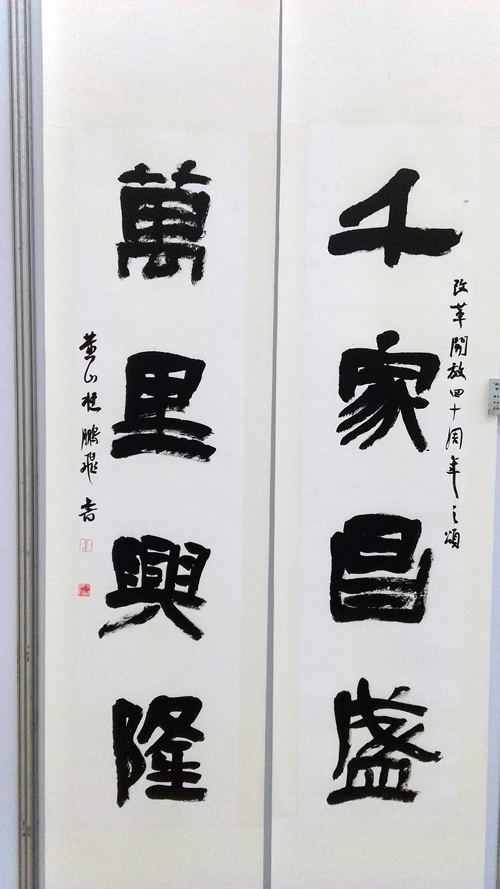 改革開放四十周年之頌
千家昌盛
萬里興隆
黄山鵬飛書